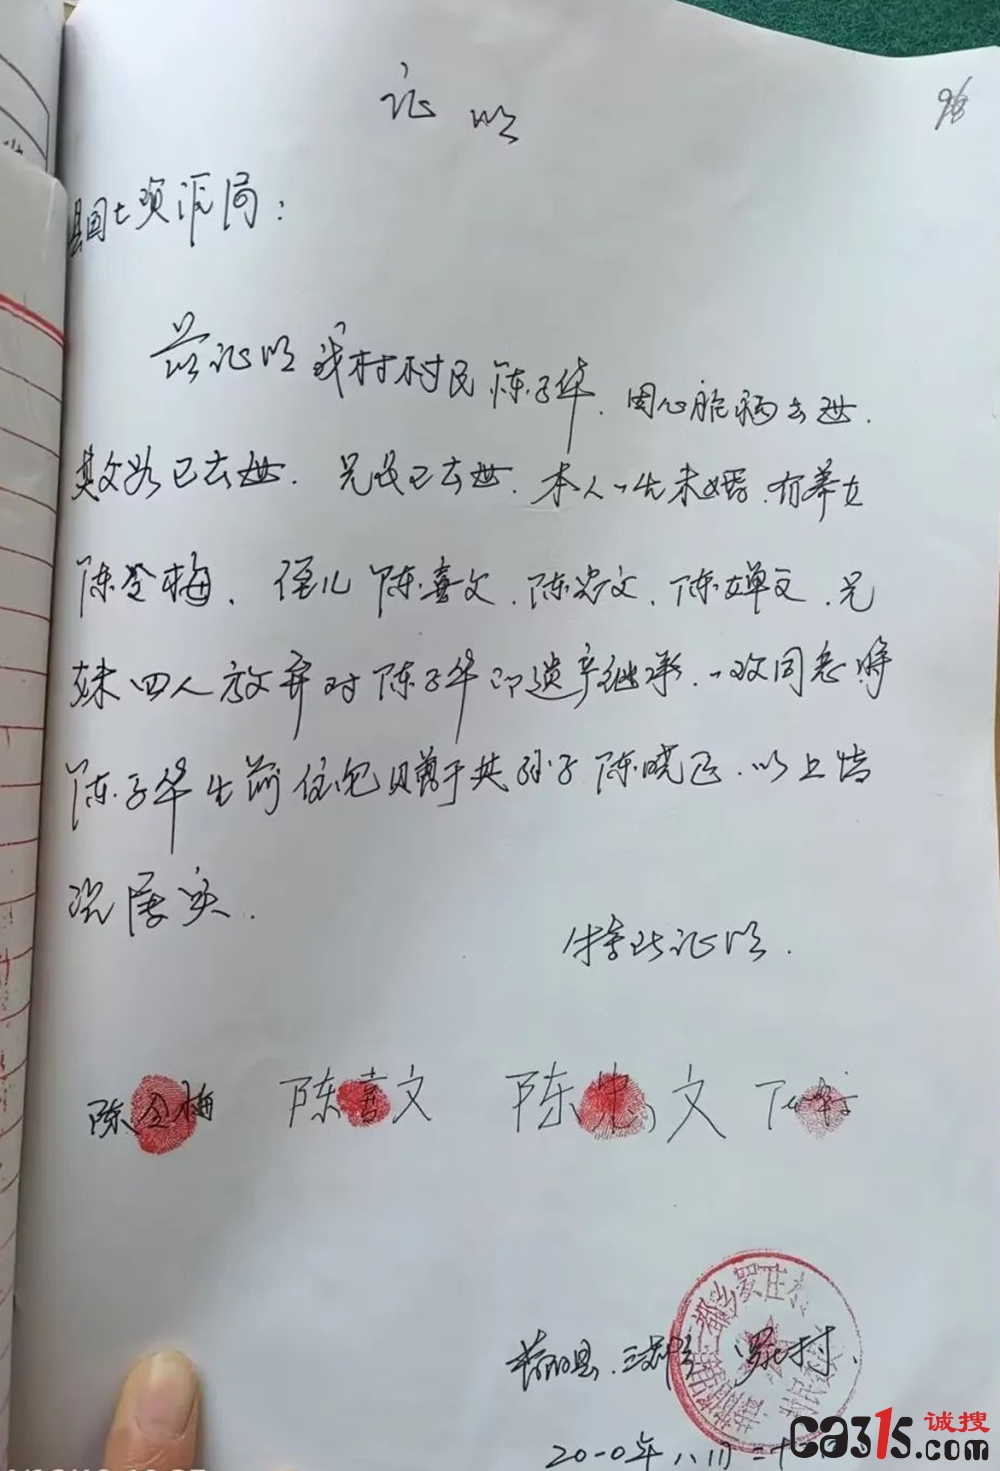 证明
98
县国土资源局：
兹证明我村村民陈子华、因心脏病去世.
其父母已去世.兄长已去世.本人一生未婚、有养女
陈全梅、侄儿陈喜文、陈忠文、陈文、兄
妹四人放弃对陈子华的遗产继承、一致同意将
陈子华生前住宅赠于其孙子陈晓飞.以上情
况属实.
特此证明.
陈全梅 陈喜文 陈忠文
县.三都 罗庄村
三都乡罗庄村
2010年八月二十
诚搜
ca315.com